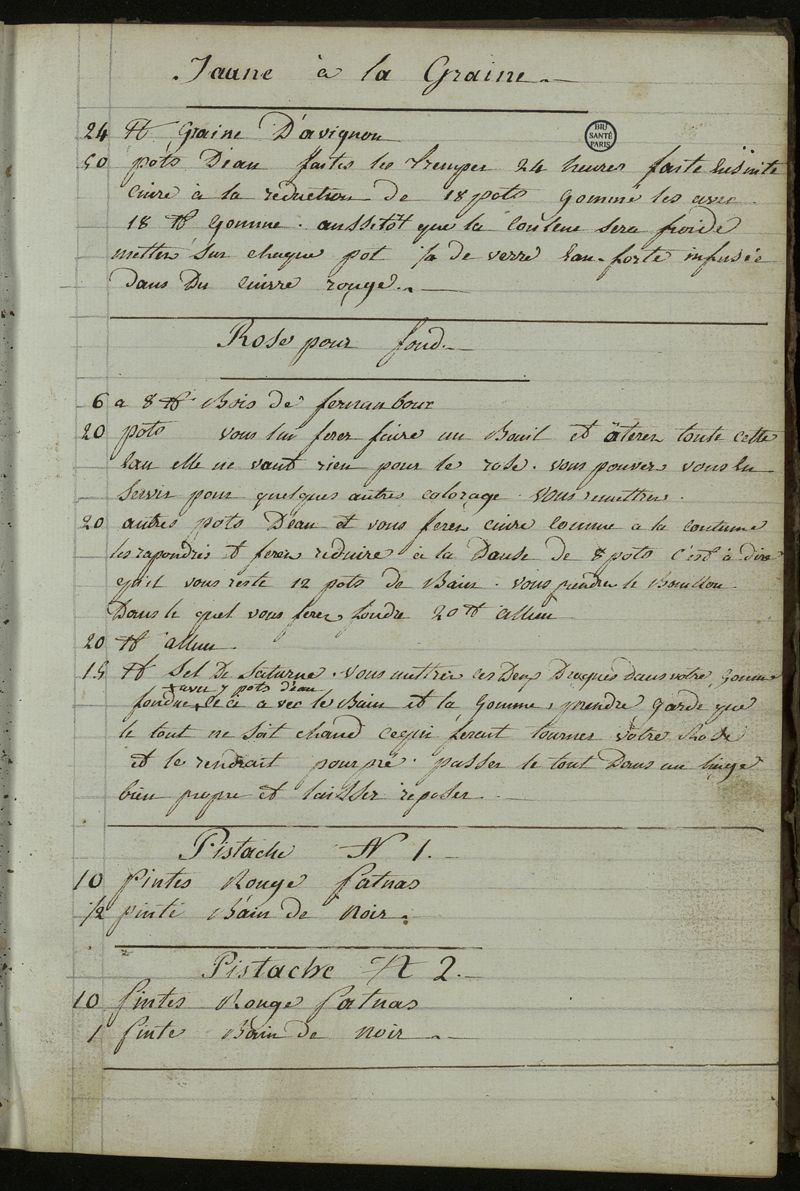 Jaune à la Graine
24 ℔ Graine D'avignon
BIU SANTÉ PARIS
50 pots Déau faites les tremper 24 heures faite Ensuite
cuire à la reduction de 18 pots Gommé les avec
18 ℔ Gomme. aussitôt que la Couleur sera froide
metter sur chaque pot ½ de verre Eau-forte infusée
dans Du Cuivre rouge.
Rose pour fond.
6 a 8 ℔ Bois de fernanbouc
20 pots vous lui ferer faire un Bouil et öterez toute cette
Eau elle ne vaut rien pour le rose. vous pouver vous En
servir pour quelques autres colorage. vous remettrez
20 autres pots Déau et vous ferez cuire Comme a la coutume
les et ferez reduire à la Dause de 8 pots c'est à dire
qu'il vous reste 12 pots de Bain. vous prendrez le Bouillon
Dans le quel vous ferez fondre 20 ℔ allun
20 ℔ allun
15 ℔ Sel De Saturne. vous mettrez ces Deux Drogues dans votre Gomme
avec 7 pots d'éau
fondue, le a vec le Bain et la Gomme, prendre Garde que
le tout ne soit chaud cequi ferait tourner votre Rose
et le rendrait pourpre. passer le tout Dans un linge
bien propre et laisser reposer.
Pistache N 1.
10 Pintes Rouge Patnas
½ pinte Bain de Noir.
Pistache N 2.
10 Pintes Rouge Patnas
1 Pinte Bain De noir